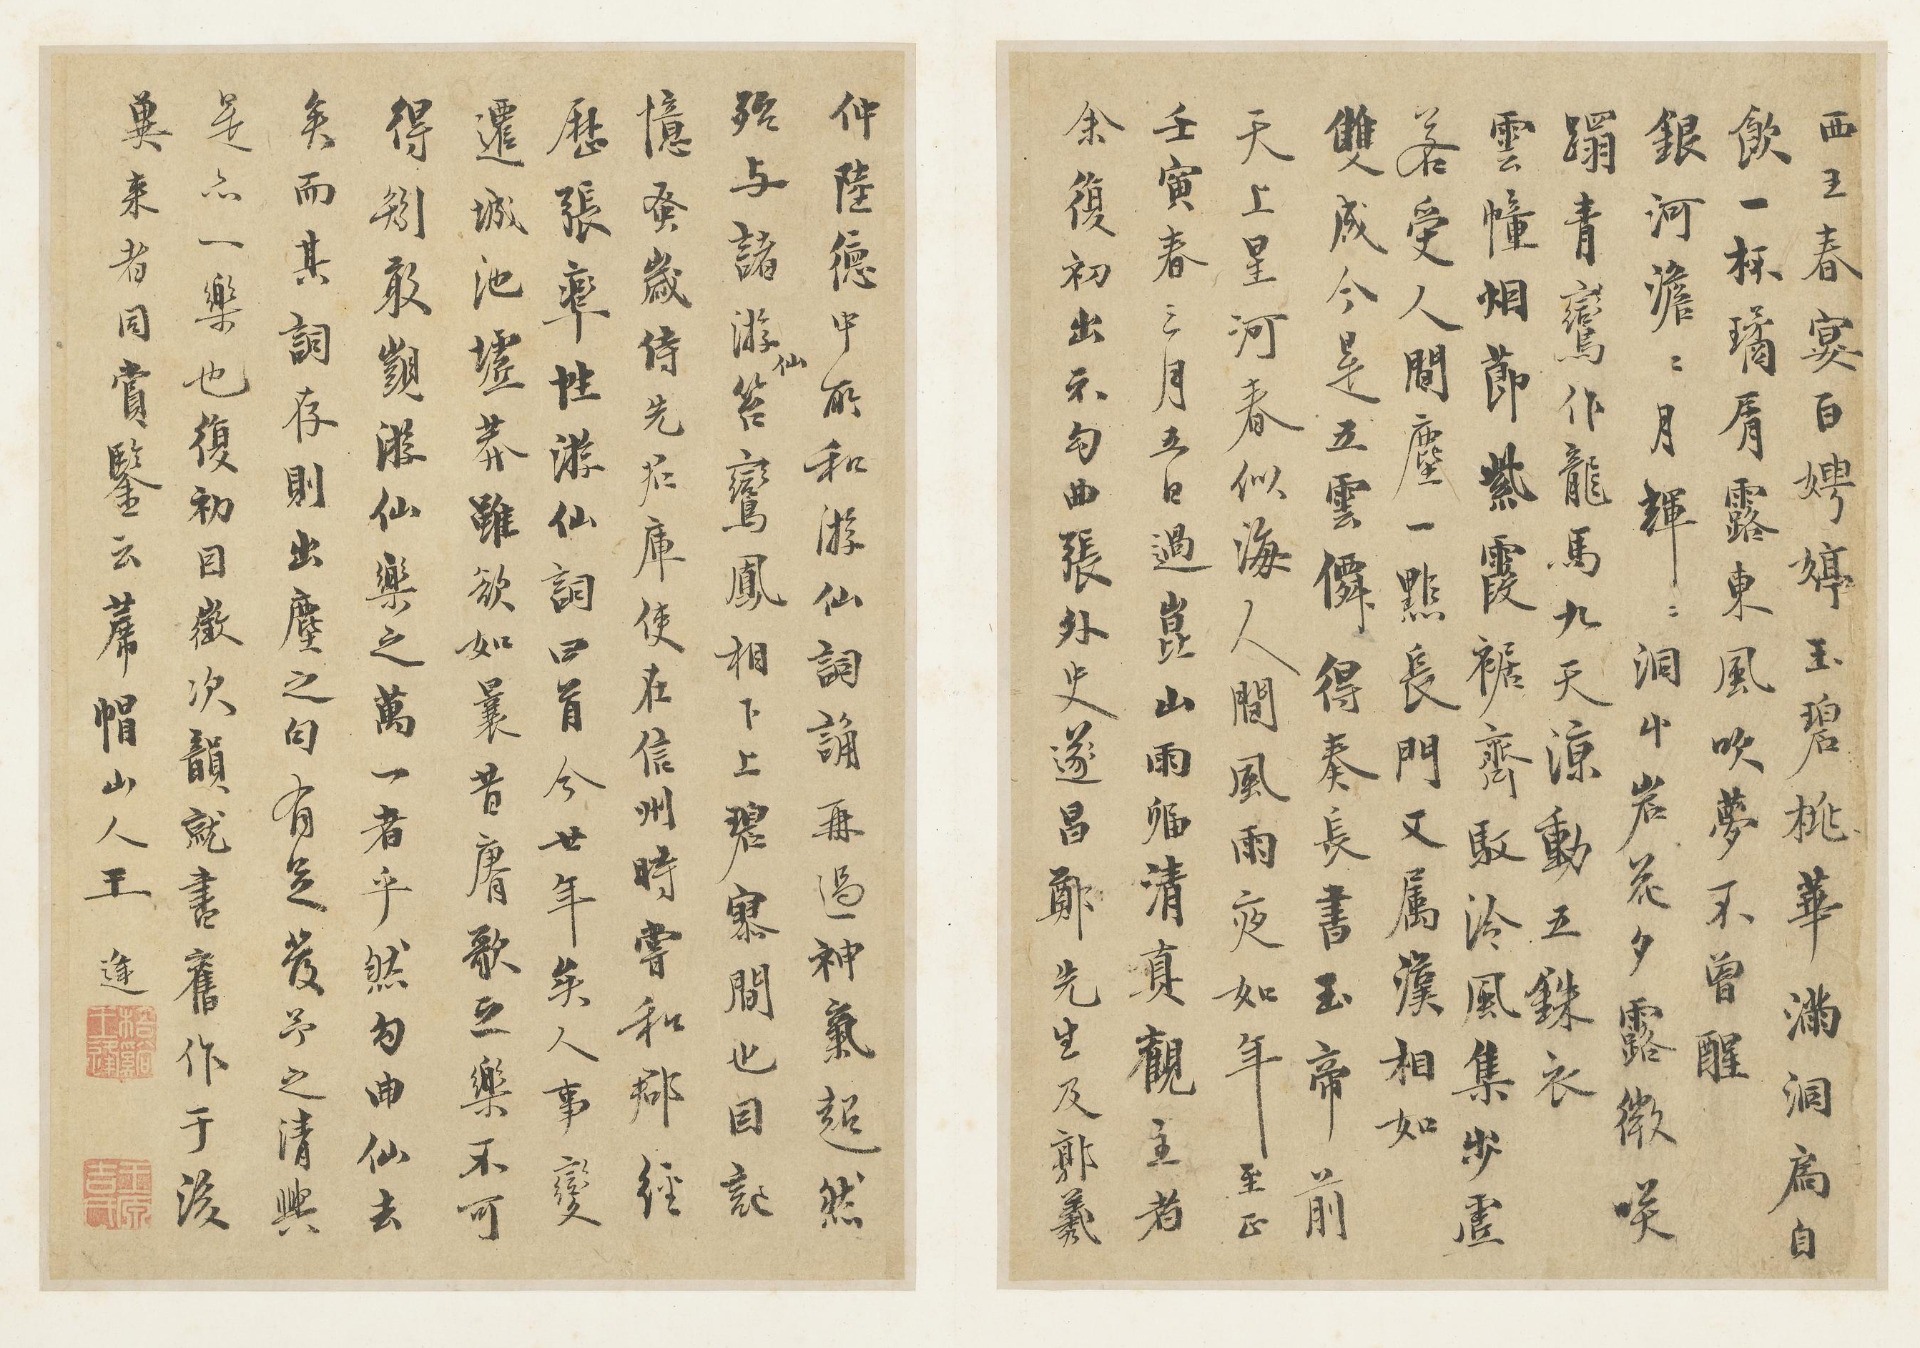 西王春宴百娉婷玉碧桃華滿洞扃自
飲一杯璚屑露東風吹夢不曾醒
銀河澹〻月輝〻洞中岩花夕露微咲
躡青鸞作龍馬九天涼動五銖衣
雲幢烟節紫霞裾齊馭泠風集步虛
若受人間塵一點長門又属漢相如
雙成今是五雲僊得奏長書玉帝前
天上星河春似海人間風雨夜如年至正
壬寅春三月五日過崑山雨宿清真觀主者
余復初出示句曲張外史遂昌鄭先生及郭羲
仲陸德中所和游仙詞誦再過神氣超然
殆与諸游仙笞鸞鳳相下上碧寥間也因記
憶癸歲侍先君庫使在信州時嘗和鄰經
歷張率性游仙詞四首今廿年矣人事變
遷城池墟莽雖欲如曩昔賡歌之樂不可
得矧敢覬游仙樂之萬一者乎然句曲仙去
矣而其詞存則出塵之句有足發予之清興
是亦一樂也復初目徵次韻就書舊作于後
冀来者同賞鑒云蓆帽山人王逢